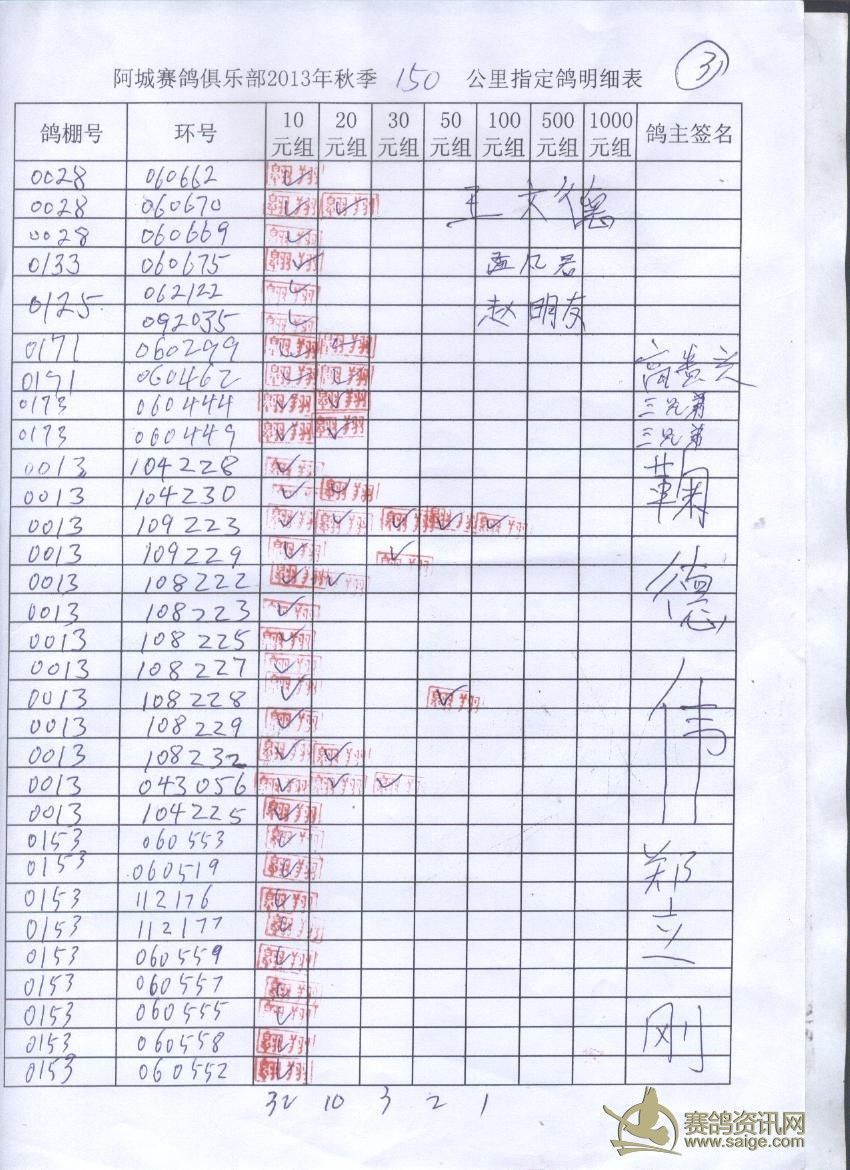 3
阿城赛鸽俱乐部2013年秋季 150 公里指定鸽明细表
鸽棚号 环号 10元组 20元组 30元组 50元组 100元组 500元组 1000元组 鸽主签名
0028 060662 ✓
0028 060670 ✓ ✓ 王文德
0028 060669 ✓
0133 060675 ✓ 孟凡君
0125 062122 ✓ 赵明友
092035 ✓
0171 060299 ✓ ✓
0171 060462 ✓ ✓
0173 060444 ✓ ✓ 三兄弟
0173 060449 ✓ ✓ 三兄弟
0013 104228 ✓
0013 104230 ✓ ✓
0013 109223 ✓ ✓ ✓ ✓ ✓
0013 109229 ✓ ✓
0013 108222 ✓ ✓ 德
0013 108223 ✓
0013 108225 ✓
0013 108227 ✓
0013 108228 ✓ ✓ 伟
0013 108229 ✓
0013 108232 ✓ ✓
0013 043056 ✓ ✓ ✓
0013 104225 ✓
0153 060553 ✓
0153 060519 ✓ 郑
0153 112176 ✓
0153 112177 ✓ 立
0153 060559 ✓
0153 060557 ✓
0153 060555 ✓
0153 060558 ✓ 刚
0153 060552 ✓
32 10 3 2 1
赛鸽资讯网
www.saige.com